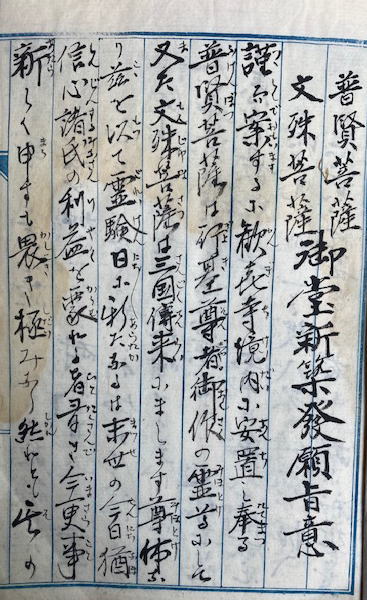 普賢菩薩
文殊菩薩 御堂新築發願旨意
謹而案するに歓喜寺境内に安置し奉る
普賢菩薩は行基尊者御作の霊尊にして
又た文殊菩薩は三國傳来にまします尊体な
り茲を以て霊験日に新たなるは末世の今日猶
信心諸氏の利益を蒙れる者多き今更事
新らく申すも畏き極みなり然れとも其の